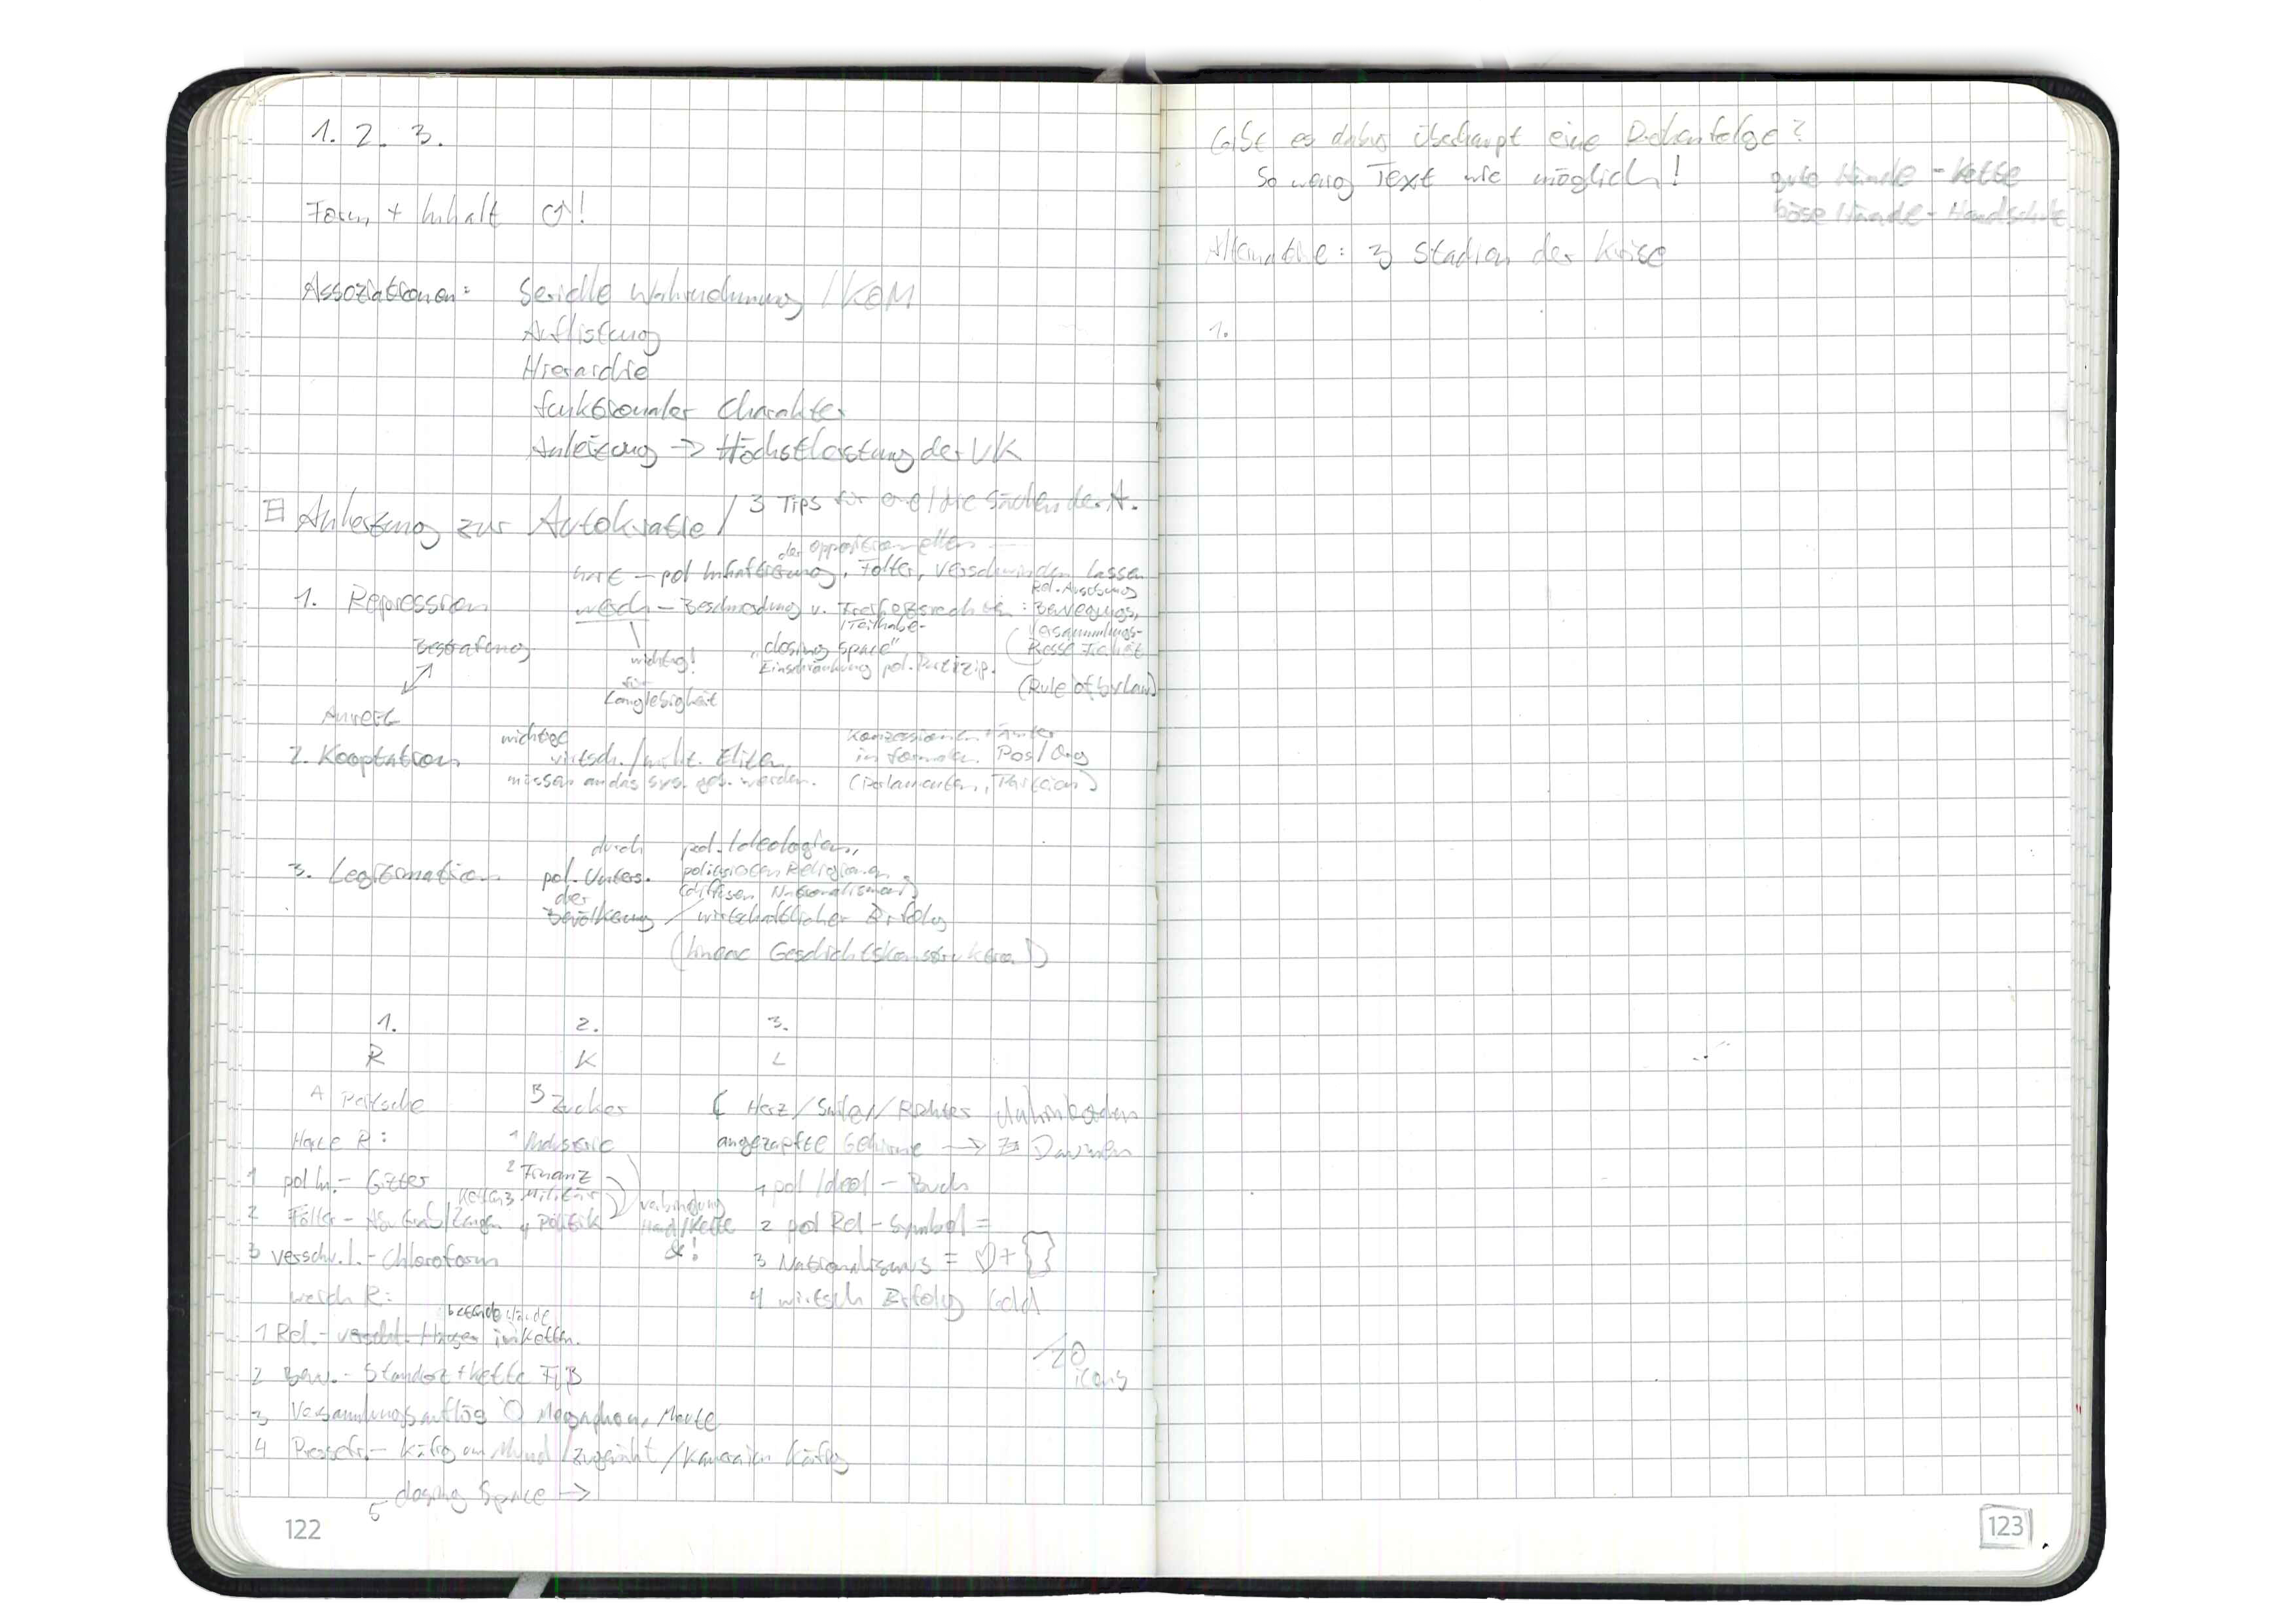 1. 2. 3.
Form + Inhalt !
Assoziationen: Serielle Wahrnehmung / KOM
Auflistung
Hierarchie
funktionaler Charakter
Anleitung → Höchstleistung der VK
Anleitung zur Autokratie / 3 Tips für die Säulen der A.
der oppositionellen
hart – pol Inhaftierung, Folter, verschwinden lassen
Rel. Ausübung
1. Repression weich – Beschneidung v. Freiheitsrechten: Bewegungs,
/Teilhabe- Versammlungs-
Bestrafung wichtig! "closing space" Presse Freiheit
Einschränkung pol. Partizip.
für (Rule of by law)
Langlebigkeit
Anreiz
wichtige Konzessionen + Ämter
2. Kooptation wirtsch. / milit. Eliten in formalen Pos/Org
müssen an das sys. geb. werden. (Parlamenten, Parteien)
durch pol. Ideologien,
3. Legitimation pol. Unters. politisierten Religionen
der (diffusen Nationalismen)
Bevölkerung / wirtschaftlicher Erfolg
(lineare Geschichtskonstruktion)
1. 2. 3.
R K L
A Peitsche B Zucker C Herz / /
Harte R: 1 Industrie angezapfte Gehirne →
1 pol In. – Gitter 2 Finanz 1 pol Ideol – Buch
Ketten 3 Militär
2 Folter – /Zangen 4 Politik Verbindung Hand/Kette &! 2 pol Rel – Symbol =
3 verschw. l. – Chloroform 3 Nationalismus = ♡ +
weich R: 4 wirtsch Erfolg Gold
betende Hände
1 Rel. – in Ketten. 20
2 Bew. – Standort + Kette icons
3 Versammlungsauflös Megaphon, Meute
4 Pressefr. – Käfig um Mund / zugenäht / Kamera im Käfig
5 closing Space →
122
Gibt es dabei überhaupt eine Reihenfolge?
So wenig Text wie möglich!
gute Hände – Kette
böse Hände – Handschuh
Alternative: 3 Stadien der Krise
1.
123